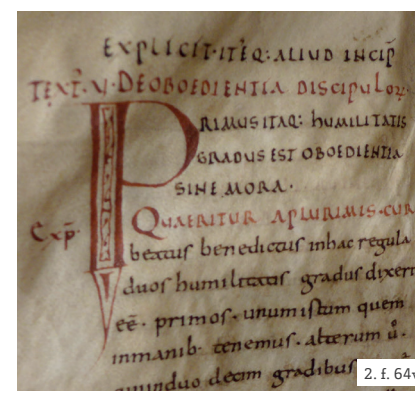 EXPLICIT·ITĒQ: ALIUD INCIP̄
TEXT̄·V·DE OBOEDIENTIA DISCIPULOR̄
PRIMUS ITAQ: hUMILITATIS
GRADUS EST OBOEDIENTIA
SINE MORA·
EXP̄·
QUAERITUR A PLURIMIS·CUR
beatus benedictus in hac regula
duos humilitatis gradus dixerit
eē· primos· unum istum quem
in manib· tenemus· alterum ů·
in duo decim gradibus
2. f. 64v